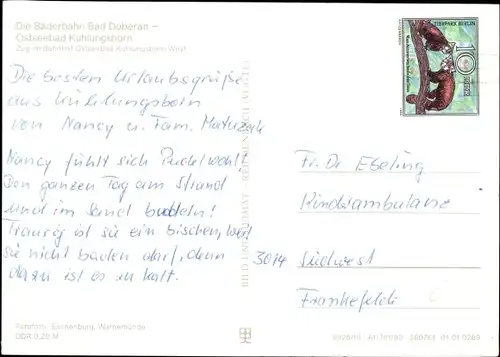 Die Bäderbahn Bad Doberan –
Ostseebad Kühlungsborn
Zug im Bahnhof Ostseebad Kühlungsborn West
TIERPARK BERLIN
10
DDR
Die besten Urlaubsgrüße
aus Kühlungsborn
von Nancy u. Fam.
Nancy fühlt sich Pudelwohl!
Den ganzen Tag am Strand
und im Sand buddeln!
Traurig ist sie ein bischen, weil
sie nicht baden darf, denn
dazu ist es zu kalt.
BILD UND HEIMAT · REICHENBACH (VOGTL)
Fr. Dr. Ebeling
Kinderambulanz
3014 Südwest
Frankefelde
Farbfoto: Sonnenburg, Warnemünde
DDR 0,20 M
01 01 0289